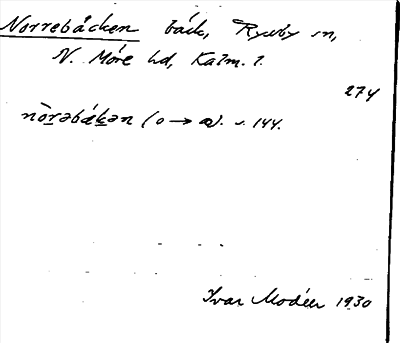 Norrebäcken bäck, Ryssby sn,
N. Möre hd, Kalm. l.
274
nòrəbǽkən (o → a). s. 144.
Ivar Modéer 1930